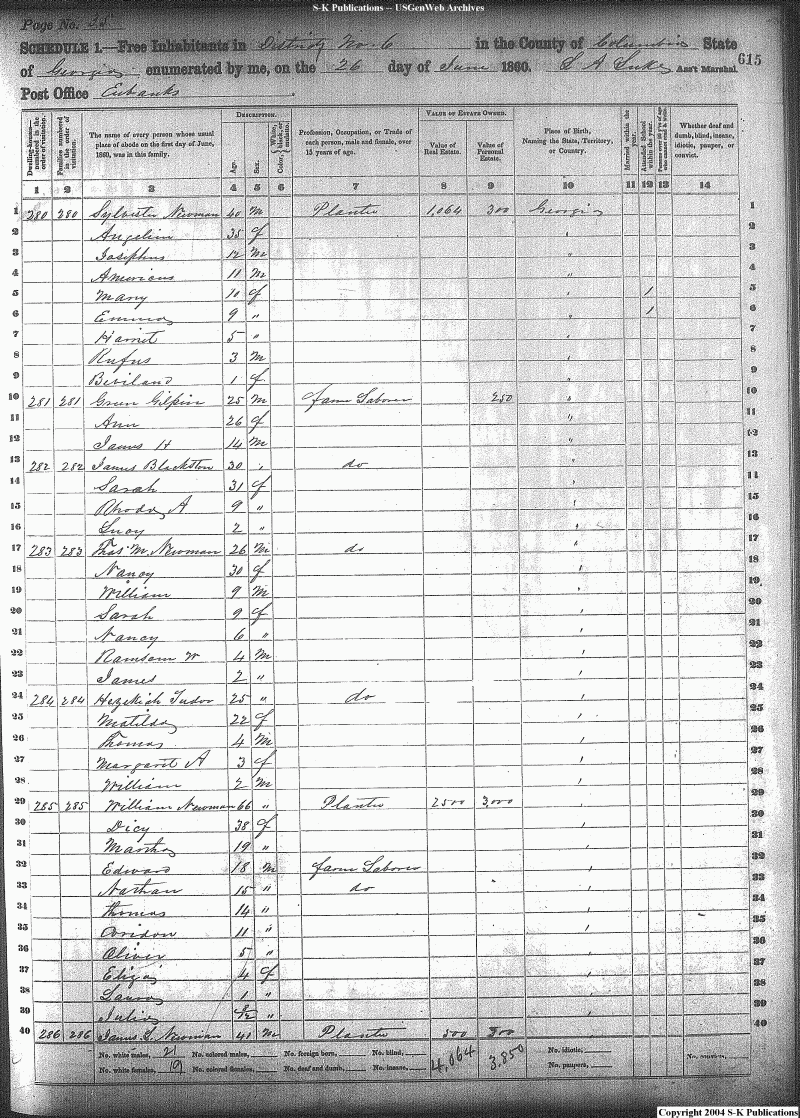 S-K Publications -- USGenWeb Archives
Page No.
SCHEDULE 1.—Free Inhabitants in District No. 6 in the County of Columbia State
of Georgia enumerated by me, on the 26 day of June 1860. Ass't Marshal. 615
Post Office Eubanks
DESCRIPTION. VALUE OF ESTATE OWNED.
The name of every person whose usual place of abode on the first day of June, 1860, was in this family. Age. Sex. Profession, Occupation, or Trade of each person, male and female, over 15 years of age. Value of Real Estate. Value of Personal Estate. Place of Birth, Naming the State, Territory, or Country. Married within the year. Attended School within the year. Whether deaf and dumb, blind, insane, idiotic, pauper, or convict.
1 2 3 4 5 6 7 8 9 10 11 12 13 14
1 280 280 Sylvester Newman 40 m Planter 1,064 300 Georgia 1
2 Angelina 35 f " 2
3 Josephus 12 m " 3
4 Americus 11 m " 4
5 Mary 10 f " 1 5
6 Emma 9 " " 1 6
7 Harriet 5 " " 7
8 Rufus 3 m " 8
9 1 f " 9
10 281 281 Green Gilpin 25 m farm Laborer 250 " 10
11 Ann 26 f " 11
12 James H 14 m " 12
13 282 282 James Blackston 30 " do " 13
14 Sarah 31 f "
15 Rhoda A 9 " "
16 Lucy 2 " "
17 283 283 Thos M. Newman 26 m do "
18 Nancy 30 f "
19 William 9 m "
20 Sarah 9 f "
21 Nancy 6 " "
22 Ransom W 4 m "
23 James 2 " "
24 284 284 Hezekiah Tudor 25 " do "
25 Matilda 22 f "
26 Thomas 4 m "
27 Margaret A 3 f "
28 William 2 m "
29 285 285 William Newman 66 " Planter 2500 3,000
30 Dicy 38 f "
31 Martha 19 "
32 Edward 18 m farm Laborer "
33 Nathan 15 " do "
34 Thomas 14 "
35 11 " "
36 Oliver 5 "
37 Eliza 4 f "
38 Laura 1 " "
39 Julia "
40 286 286 James S. Newman 41 m Planter 500 300 40
No. white males, 21 No. colored males, No. foreign born, No. blind, 4,064 3,850 No. idiotic,
No. white females, 19 No. colored females, No. deaf and dumb, No. insane, No. paupers, No. convicts,
Copyright 2004 S-K Publications